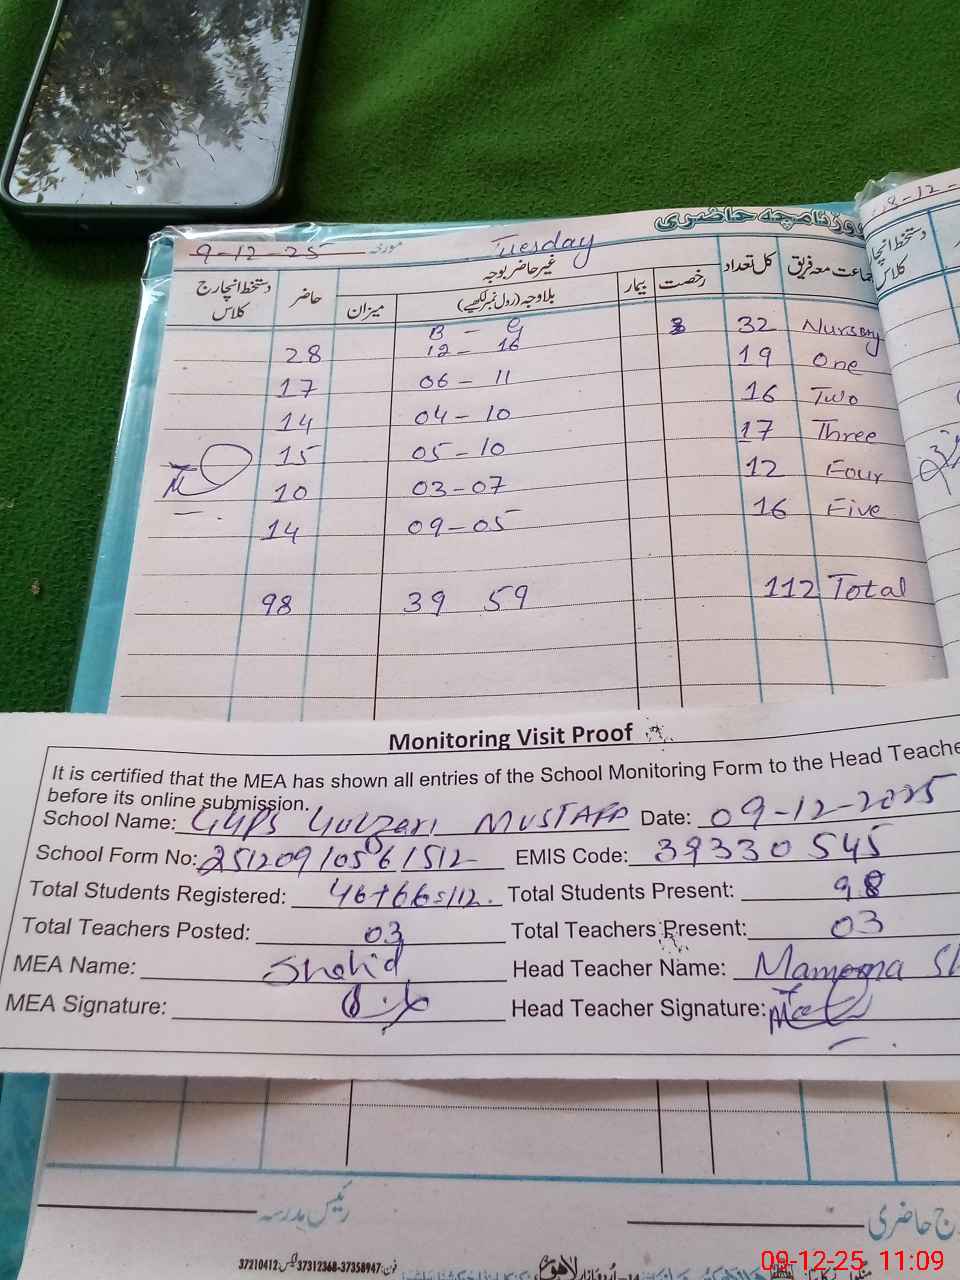 روزنامچہ حاضری
9-12-25 مورخہ Tuesday
جماعت معہ فریق کل تعداد رخصت بیمار غیر حاضر بوجہ حاضر دستخط انچارج کلاس
بلاوجہ (رول نمبر لکھیے) میزان
B - G
Nursery 32 12 - 16 28
One 19 06 - 11 17
Two 16 04 - 10 14
Three 17 05 - 10 15
Four 12 03 - 07 10
Five 16 09 - 05 14
Total 112 39 59 98
دستخط انچارج
کلاس
Monitoring Visit Proof
It is certified that the MEA has shown all entries of the School Monitoring Form to the Head Teache
before its online submission.
School Name: GGPS Gulzari MUSTAFA Date: 09-12-2025
School Form No: 25120910561512 EMIS Code: 39330545
Total Students Registered: 46+66=112. Total Students Present: 98
Total Teachers Posted: 03 Total Teachers Present: 03
MEA Name: Shahid Head Teacher Name: Mamoona Sh
MEA Signature: Head Teacher Signature:
رئیس مدرسہ
ج حاضری
فون: 37358947-37312368 فیکس: 37210412
لاہور
09-12-25 11:09